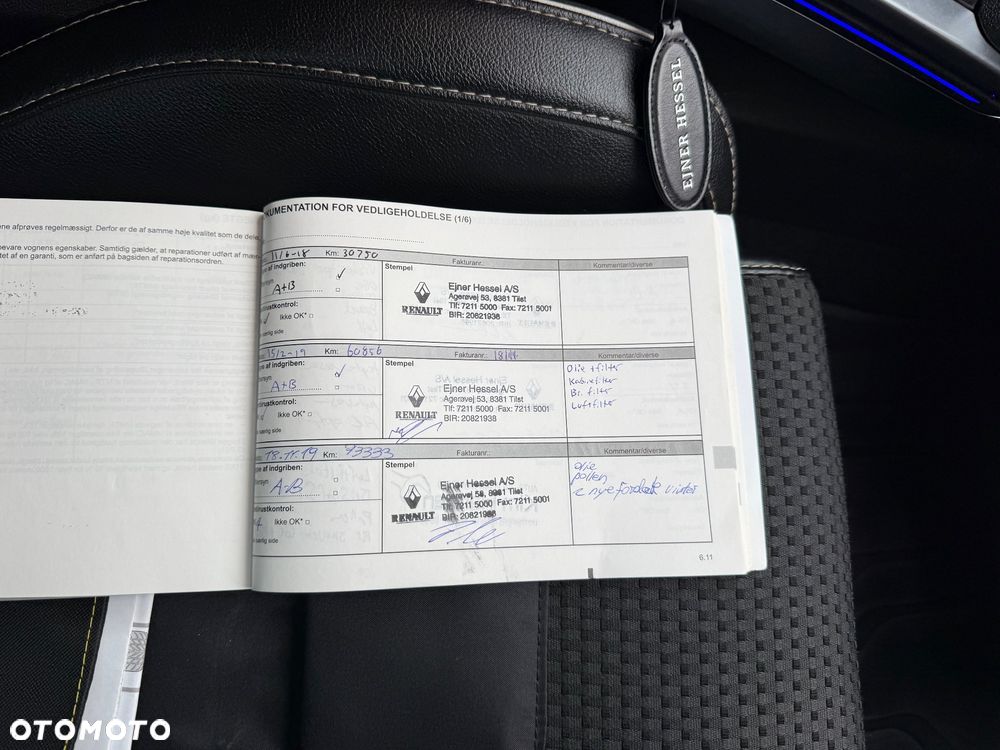 EJNER HESSEL
ne afprøves regelmæssigt. Derfor er de af samme høje kvalitet som de dele
bevare vognens egenskaber. Samtidig gælder, at reparationer udført af
tet af en garanti, som er anført på bagsiden af reparationsordren.
KUMENTATION FOR VEDLIGEHOLDELSE (1/6)
11/6-18 Km: 30750 Fakturanr.: Kommentar/diverse
pe af indgriben: Stempel
A+B
Ejner Hessel A/S
Agerøvej 53, 8381 Tilst
Tlf: 7211 5000 Fax: 7211 5001
BIR: 20821938
RENAULT
rustkontrol:
Ikke OK*
særlig side
15/2-19 Km: 60856 Fakturanr.: Kommentar/diverse
pe af indgriben: Stempel
A+B
Ejner Hessel A/S
Agerøvej 53, 8381 Tilst
Tlf: 7211 5000 Fax: 7211 5001
BIR: 20821938
RENAULT
Olie +filter
Kabinefilter
Br. filter
Luftfilter
rustkontrol:
Ikke OK*
særlig side
18.11.19 Km: 93333 Fakturanr.: Kommentar/diverse
pe af indgriben: Stempel
A+B
Ejner Hessel A/S
Agerøvej 53, 8381 Tilst
Tlf: 7211 5000 Fax: 7211 5001
BIR: 20821938
RENAULT
olie
pollen
2 nye fordæk vinter
rustkontrol:
Ikke OK*
særlig side
6.11
OTOMOTO